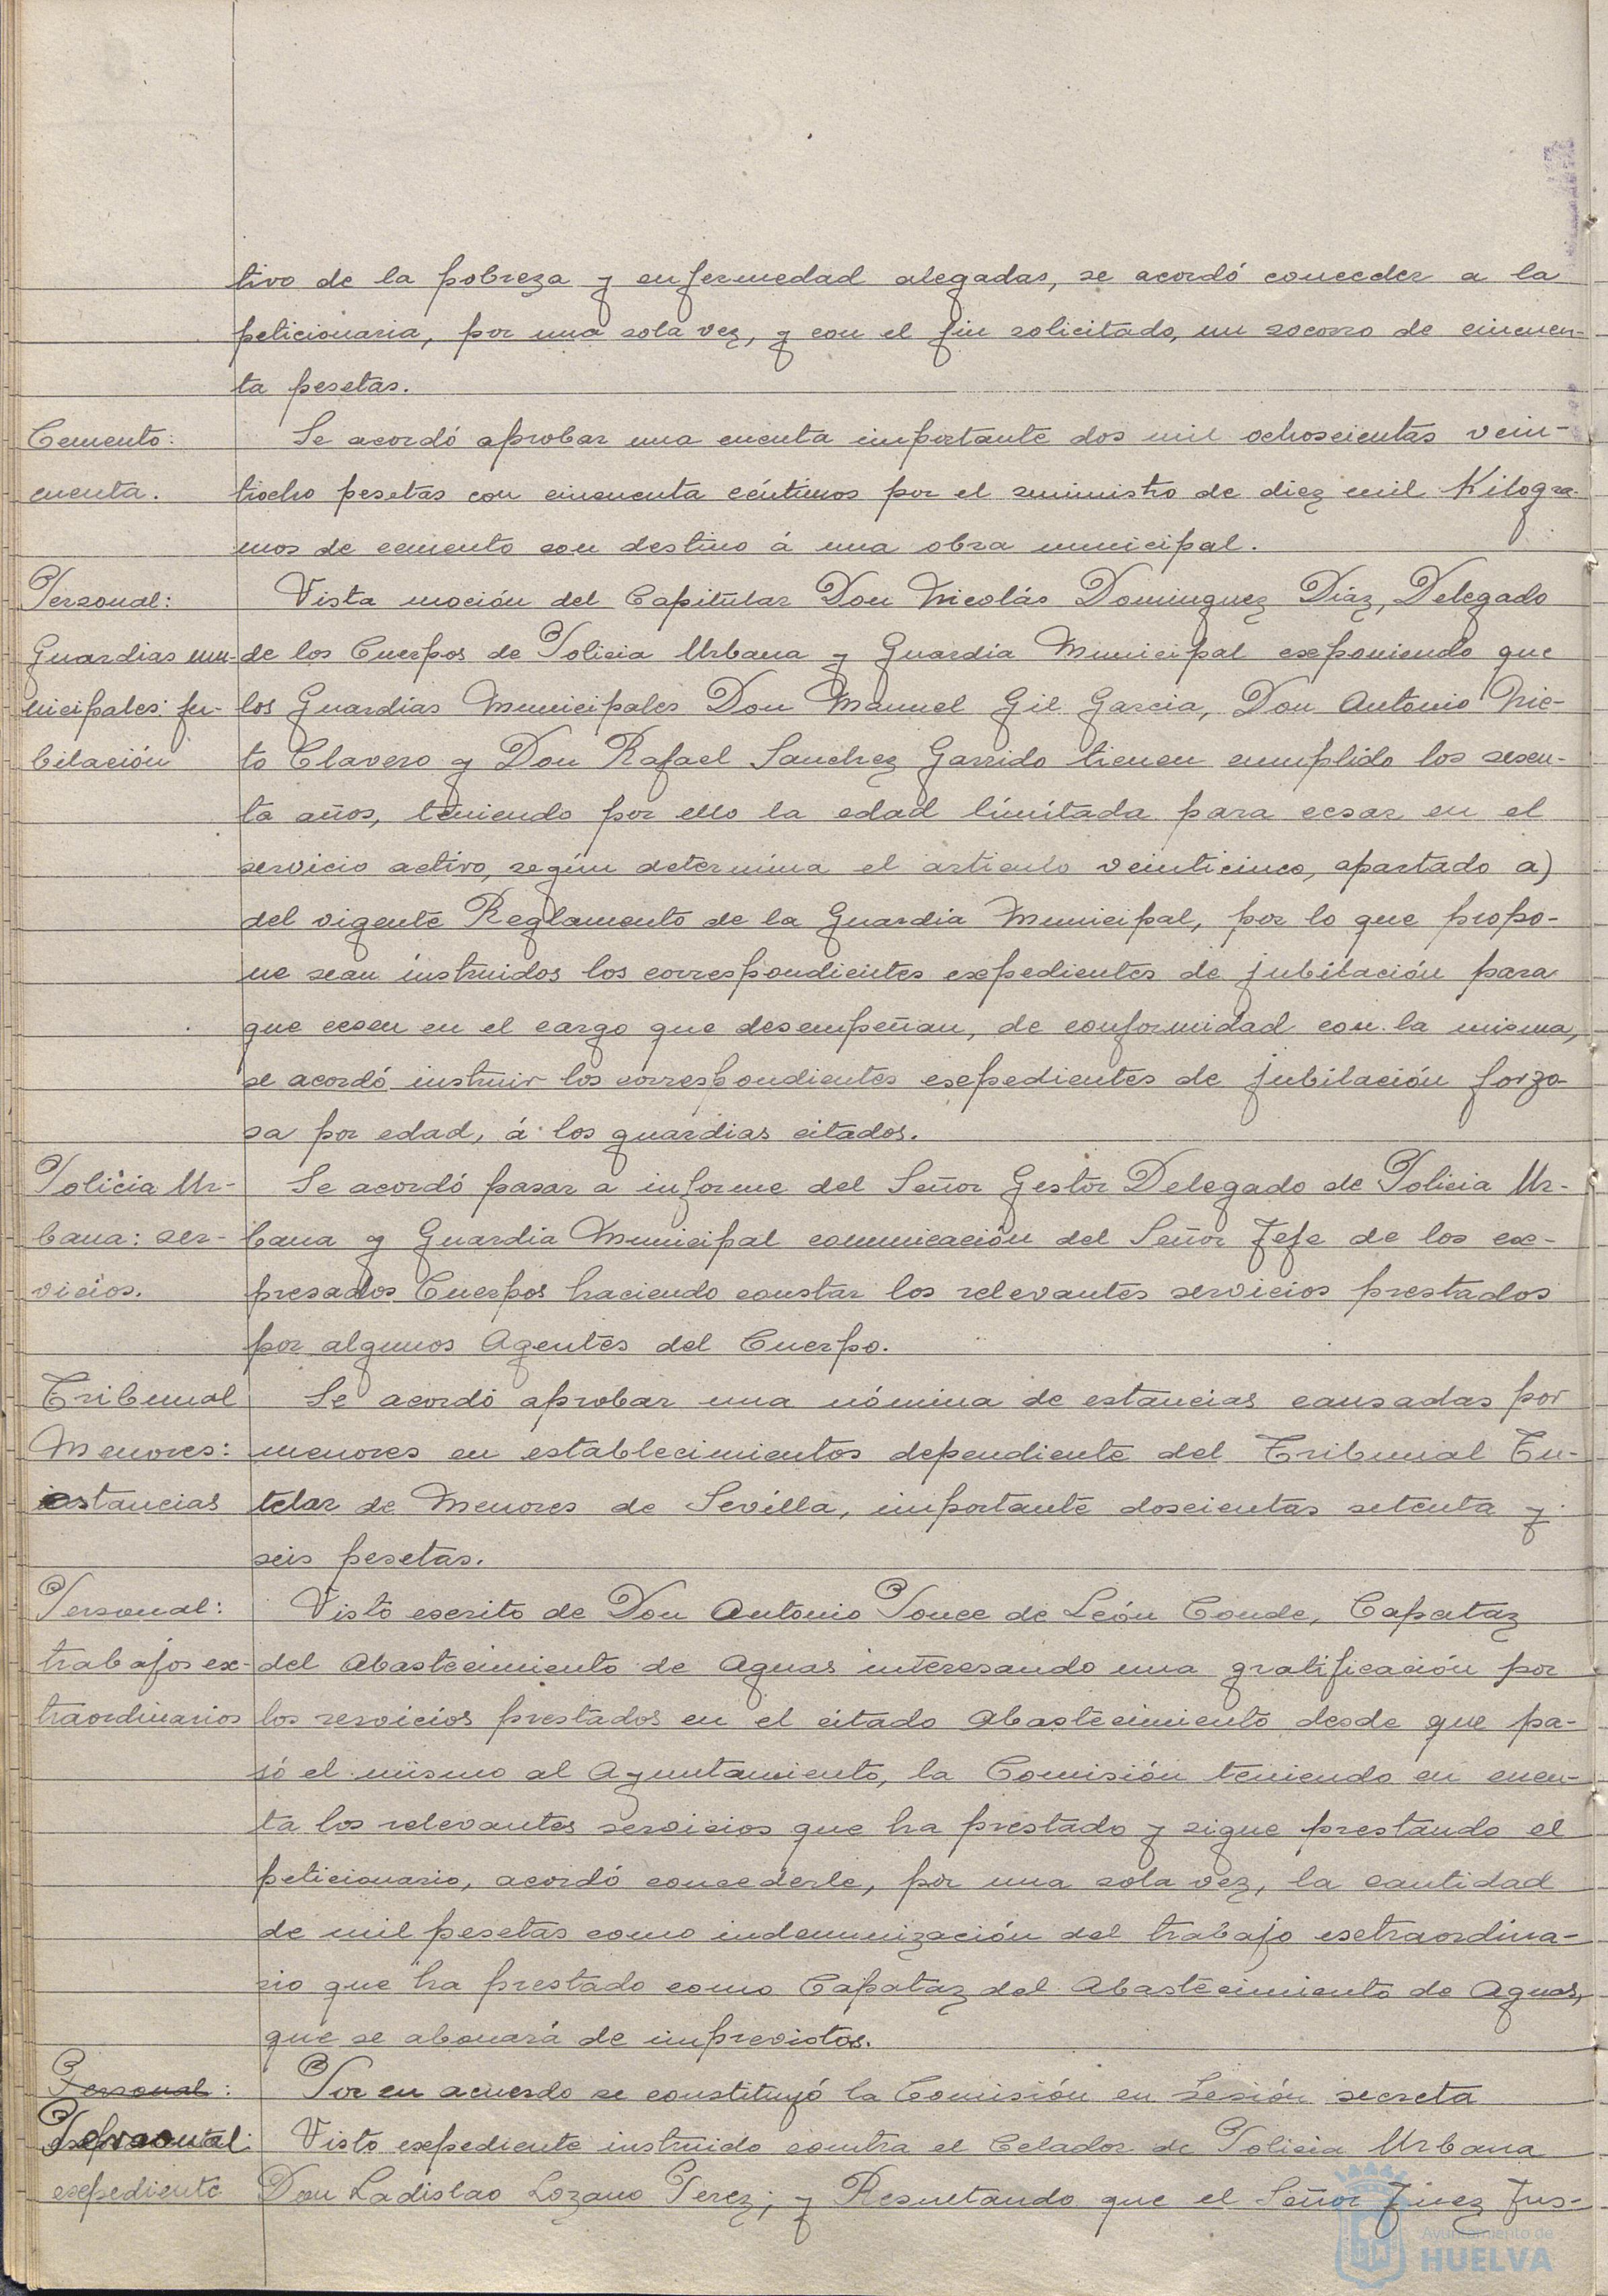 tivo de la pobreza y enfermedad alegadas, se acordó conceder a la
peticionaria, por una sola vez, y con el fin solicitado, un socorro de cincuen-
ta pesetas.
Cemento:
cuenta.
Se acordó aprobar una cuenta importante dos mil ochoscientas vein-
tiocho pesetas con cincuenta céntimos por el suministro de diez mil Kilogra-
mos de cemento con destino á una obra municipal.
Personal:
Guardias mu-
nicipales: ju-
bilación
Vista moción del Capitular Don Nicolás Dominguez Díaz, Delegado
de los Cuerpos de Policia Urbana y Guardia Municipal exponiendo que
los Guardias Municipales Don Manuel Gil Garcia, Don Antonio Nie-
to Clavero y Don Rafael Sanchez Garrido tienen cumplido los sesen-
ta años, teniendo por ello la edad límitada para cesar en el
servicio activo, según determina el articulo veinticinco, apartado a)
del vigente Reglamento de la Guardia Municipal, por lo que propo-
ne sean instruidos los correspondientes expedientes de jubilación para
que cesen en el cargo que desempeñan, de conformidad con la misma,
se acordó instruir los correspondientes expedientes de jubilación forzo-
sa por edad, á los guardias citados.
Policia Ur-
bana: ser-
vicios.
Se acordó pasar a informe del Señor Gestor Delegado de Policia Ur-
bana y Guardia Municipal comunicación del Señor Jefe de los ex-
presados Cuerpos haciendo constar los relevantes servicios prestados
por algunos Agentes del Cuerpo.
Tribunal
Menores:
estancias
Se acordó aprobar una nómina de estancias causadas por
menores en establecimientos dependiente del Tribunal Tu-
telar de Menores de Sevilla, importante doscientas setenta y
seis pesetas.
Personal:
trabajos ex-
traordinarios
Visto escrito de Don Antonio Ponce de León Conde, Capataz
del Abastecimiento de Aguas interesando una gratificación por
los servicios prestados en el citado Abastecimiento desde que pa-
só el mismo al Ayuntamiento, la Comisión teniendo en cuen-
ta los relevantes servicios que ha prestado y sigue prestando el
peticionario, acordó concederle, por una sola vez, la cantidad
de mil pesetas como indemnización del trabajo extraordina-
rio que ha prestado como Capataz del Abastecimiento de Aguas,
que se abonará de imprevistos.
Personal:
Personal:
expediente
Por en acuerdo se constituyó la Comisión en Sesión secreta
Visto expediente instruido contra el Celador de Policia Urbana
Don Ladislao Lozano Perez; y Resultando que el Señor Juez Ins-
Ayuntamiento de
HUELVA